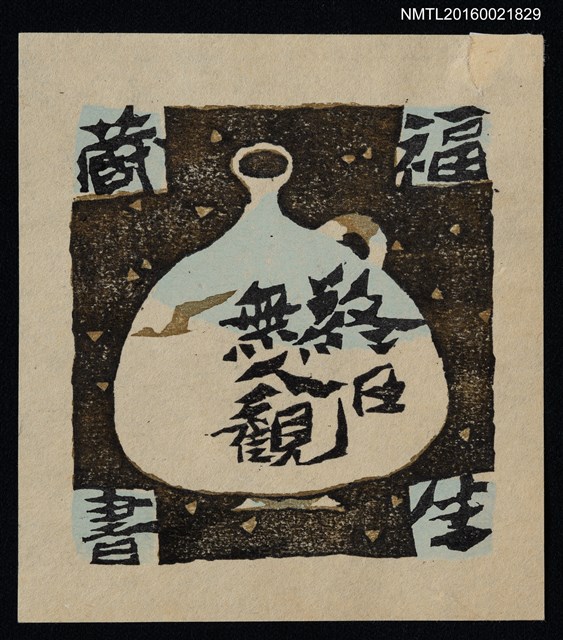 NMTL20160021829
福生
藏書
終
無人觀